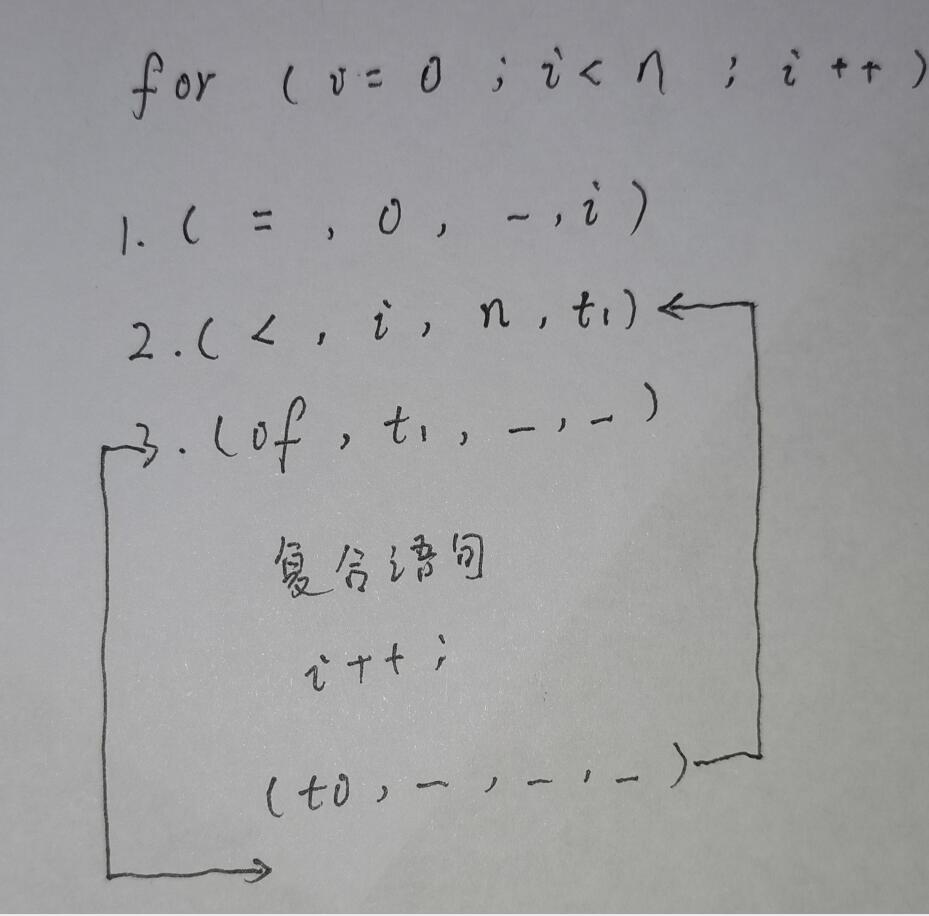 for (i=0 ; i<n ; i++)
1. ( = , 0 , - , i )
2. ( < , i , n , t₁)
3. (of , t₁ , - , - )
复合语句
i++ ;
(to , - , - , - )